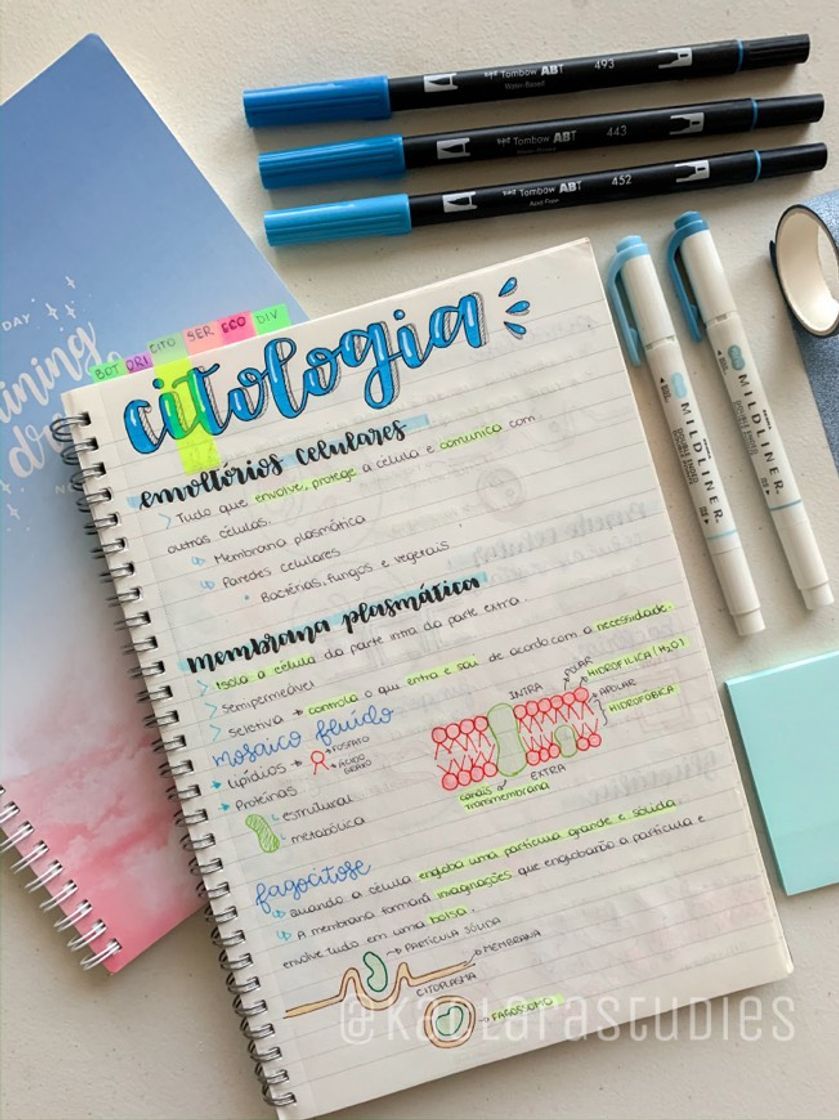 Tombow ABT 493
Water-Based
Tombow ABT 443
Tombow ABT 452
Acid Free
DAY
BOT ORI CITO SER ECO DIV
citologia
MILDLINER
DOUBLE ENDED
MILDLINER
DOUBLE ENDED
envoltórios celulares
Tudo que envolve, protege a célula e comunica com
outras células.
Membrana plasmática
Paredes celulares
Bactérias, fungos e vegetais
membrana plasmática
Isola a célula da parte intra da parte extra.
Semipermeável
Seletiva → controla o que entra e sai de acordo com a necessidade.
mosaico fluido
Lipídios → FOSFATO
ÁCIDO
GRAXO
Proteínas
estrutural
metabólica
INTRA
POLAR
HIDROFÍLICA (H₂O)
APOLAR
HIDROFÓBICA
EXTRA
canais
transmembrana
fagocitose
Quando a célula engloba uma partícula grande e sólida.
A membrana formará invaginações que englobarão a partícula e
envolve tudo em uma bolsa.
PARTÍCULA SÓLIDA
MEMBRANA
CITOPLASMA
FAGOSSOMO